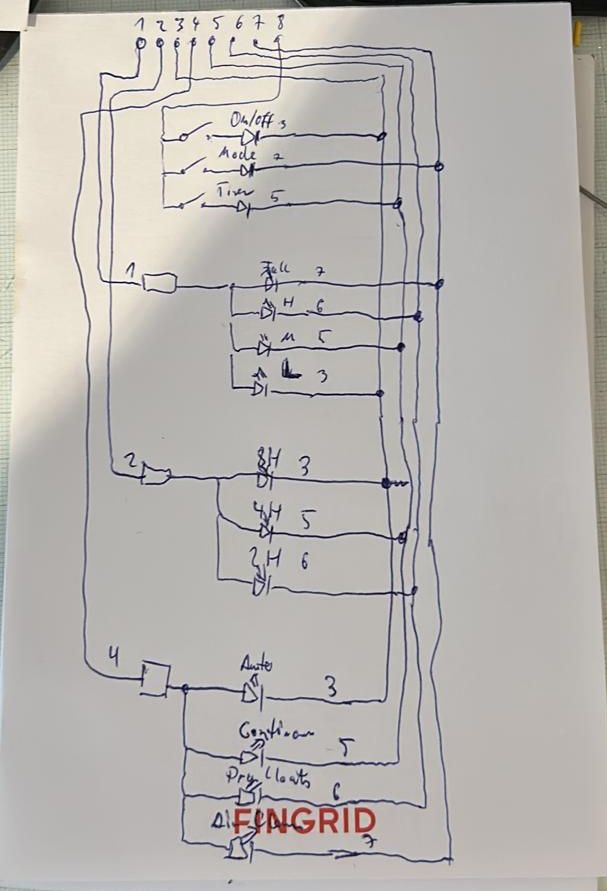 1 2 3 4 5 6 7 8
On/off 3
Mode 7
Timer 5
1 Full 7
H 6
M 5
L 3
2 8H 3
4H 5
2H 6
4 Auto 3
5
Dry Cloats 6
FINGRID
7